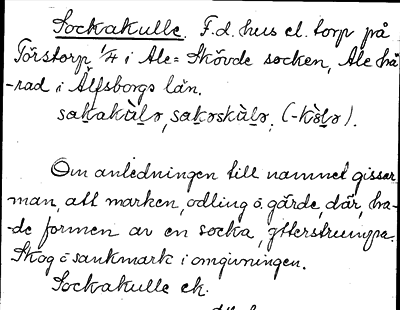 Sockakulle. F.d. hus el. torp på
Törstorp 1/4 i Ale=Skövde socken, Ale hä
-rad i Älfsborgs län.
sakakùlə, sakəskùlə, (-kòlə).
Om anledningen till namnet gissar
man, att marken, odling o. gärde, där, ha-
de formen av en socka, ytterstrumpa.
Skog o sankmark i omgivningen.
Sockakulle ek.